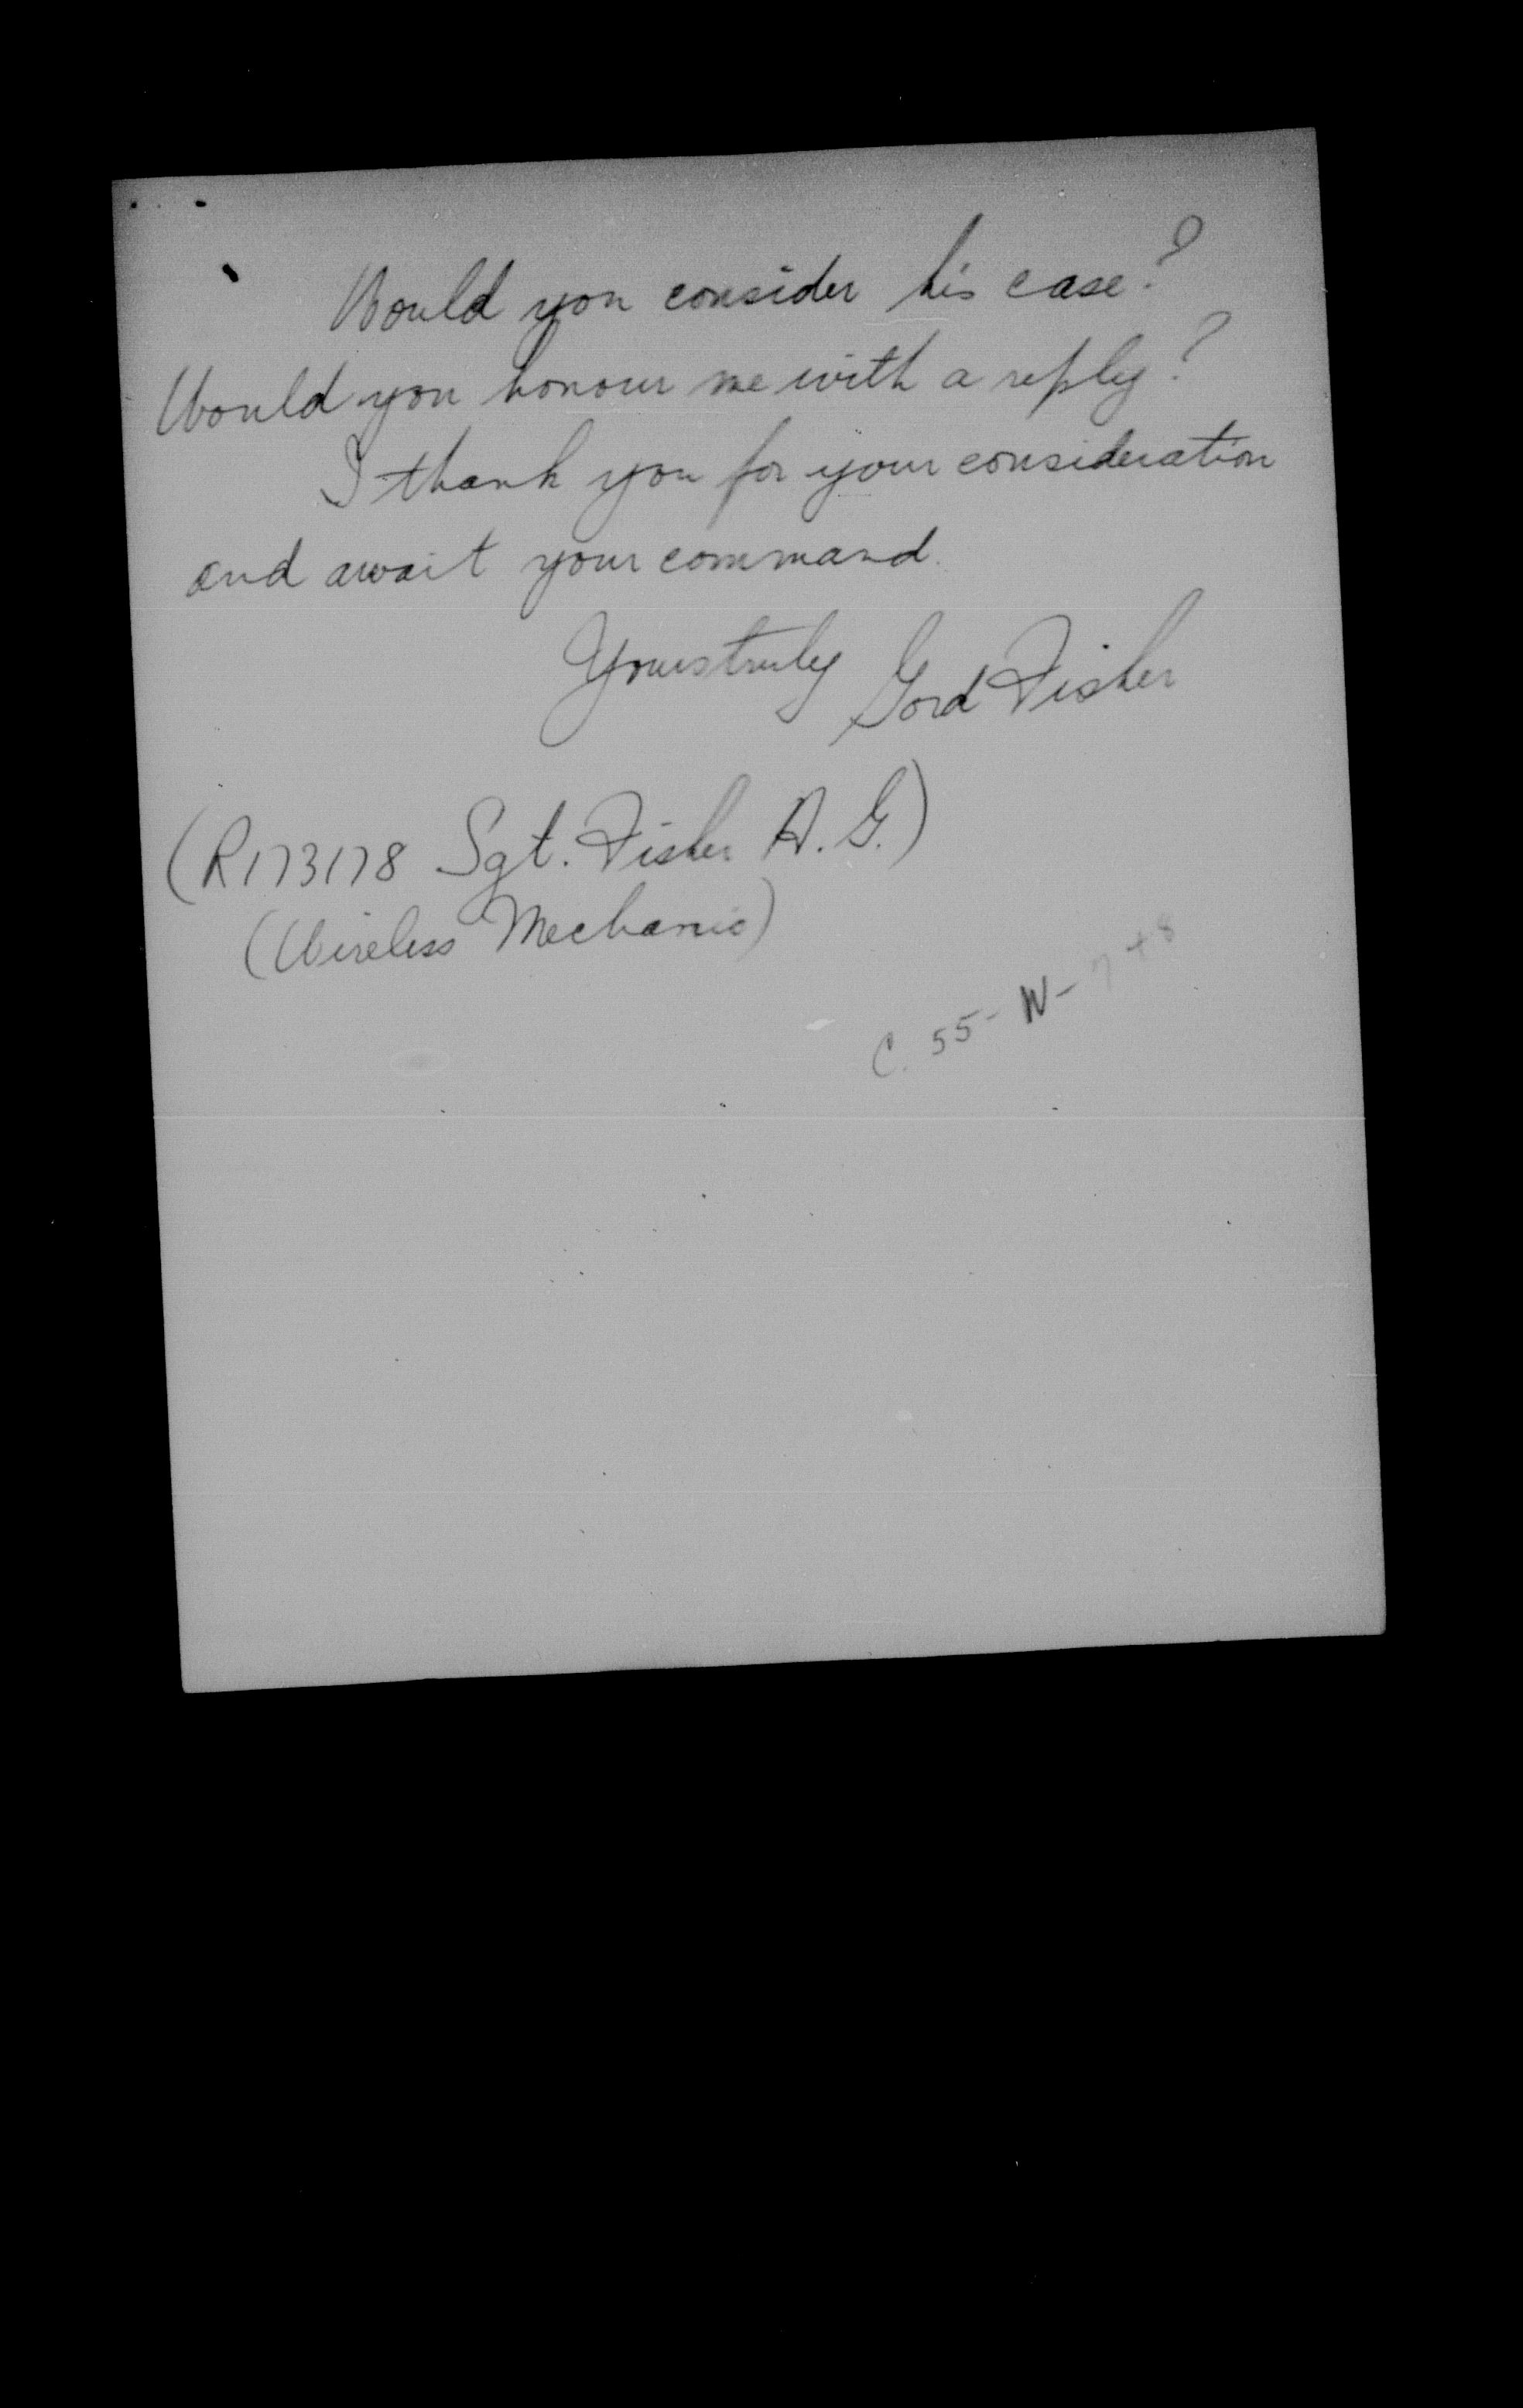 Would you consider his case?
Would you honour me with a reply?
I thank you for your consideration
and await your command.
Yours truly Gord Fisher
(R173178 Sgt. Fisher A. G.)
(Wireless Mechanic)
C. 55 - W - 7 + 8